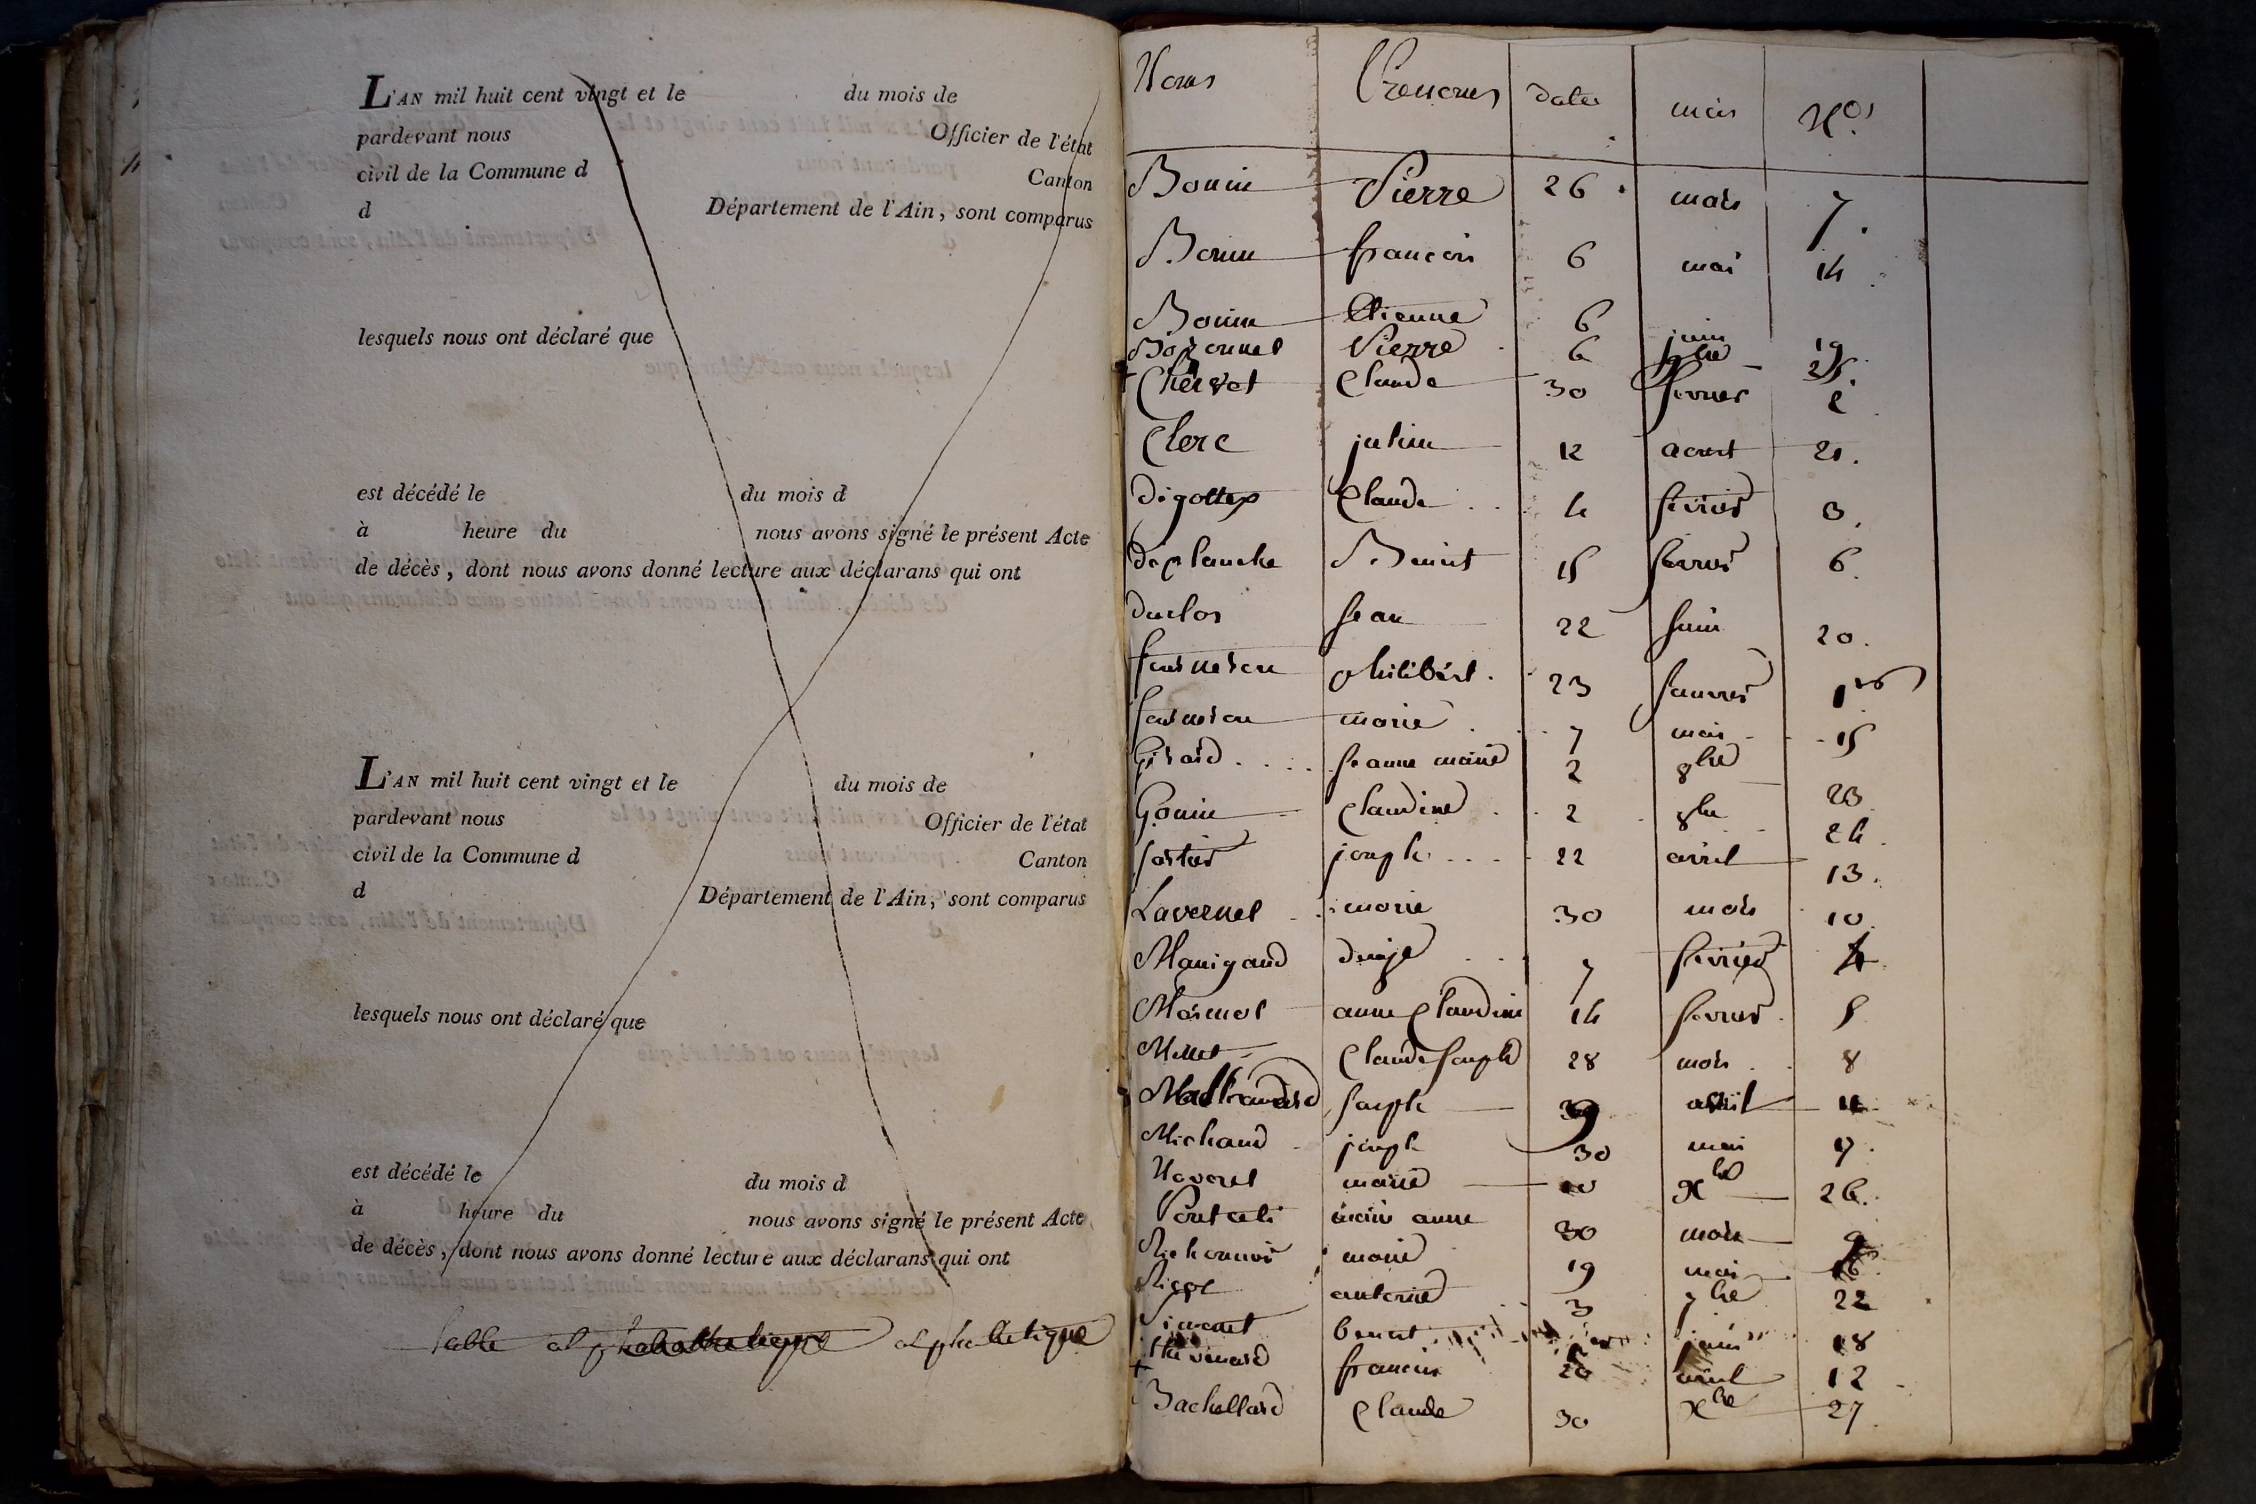 L'AN mil huit cent vingt et le du mois de
pardevant nous Officier de l'état
civil de la Commune d Canton
d Département de l'Ain, sont comparus
lesquels nous ont déclaré que
est décédé le du mois d
à heure du nous avons signé le présent Acte
de décès, dont nous avons donné lecture aux déclarans qui ont
L'AN mil huit cent vingt et le du mois de
pardevant nous Officier de l'état
civil de la Commune d Canton
d Département de l'Ain, sont comparus
lesquels nous ont déclaré que
est décédé le du mois d
à heure du nous avons signé le présent Acte
de décès, dont nous avons donné lecture aux déclarans qui ont
table alphabetique
Noms Prenoms dates mois Nos
Bonin Pierre 26 mars 7.
Bonin francois 6 mai 14
Bonin Etienne 6 juin 19
Bozonnet Pierre 6 9bre 25
Chervet Claude 30 2
Clerc julien 12 aout 21.
digottex Claude 4 fevrier 3.
deplanche Benoit 15 fevrier 6.
duclos Jean 22 Juin 20.
philibert. 23 Janvier 1er
marie 7 mai 15
Girard Jeanne marie 2 8bre 23
Gonin Claudine 2 8bre 24.
joseph 22 avril 13.
Lavernet marie 30 mars 10.
Manigand 7 fevrier 4.
Marmet anne Claudine 14 fevrier 5
Millet Claude Joseph 28 mars 8
Joseph 9 avril 11
Michaud joseph 30 mai 17.
marie 10 Xbre 26.
anne 30 mars 9
marie 19 mai 16
antoine 3 7bre 22
benoit juin 18
thevenard francois 20 avril 12
Bachellard Claude 30 Xbre 27.